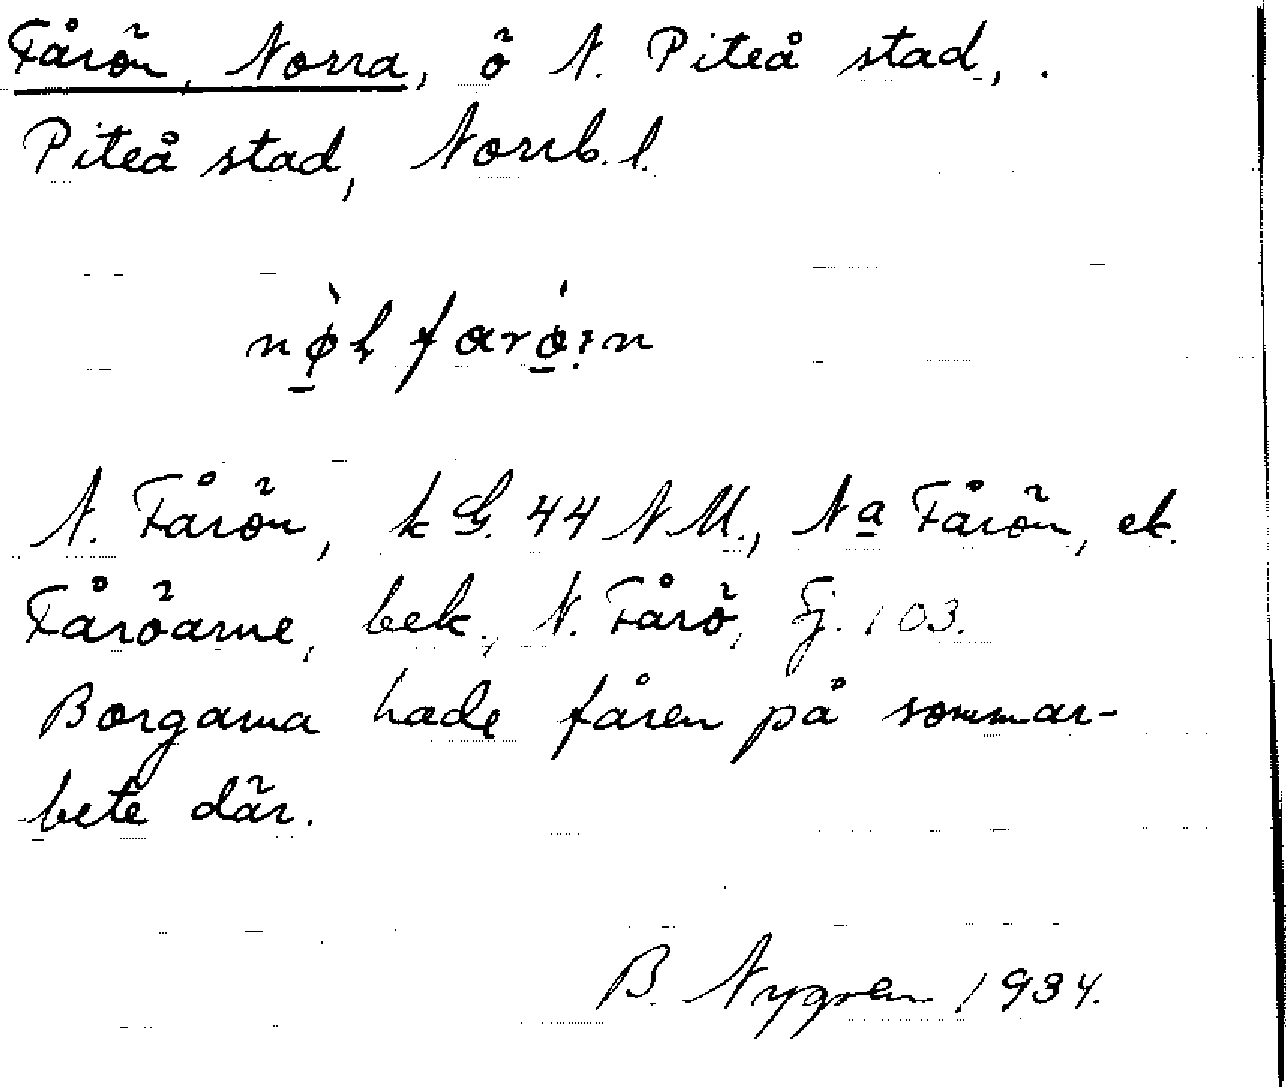 Fårön, Norra, ö N. Piteå stad, .
Piteå stad, Norrb. l.
N. Fårön, k G. 44 N M., Na Fårön, ek.
Fåröarne, bek., N. Fårö, Fj. 103.
Borgarna hade fåren på sommar-
bete där.
B. Nygren 1934.